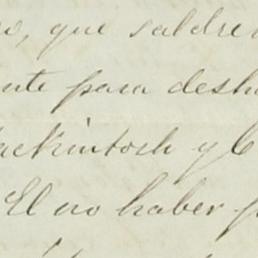 o, que saldre
nte para desh
ackintosh y C
El no haber p